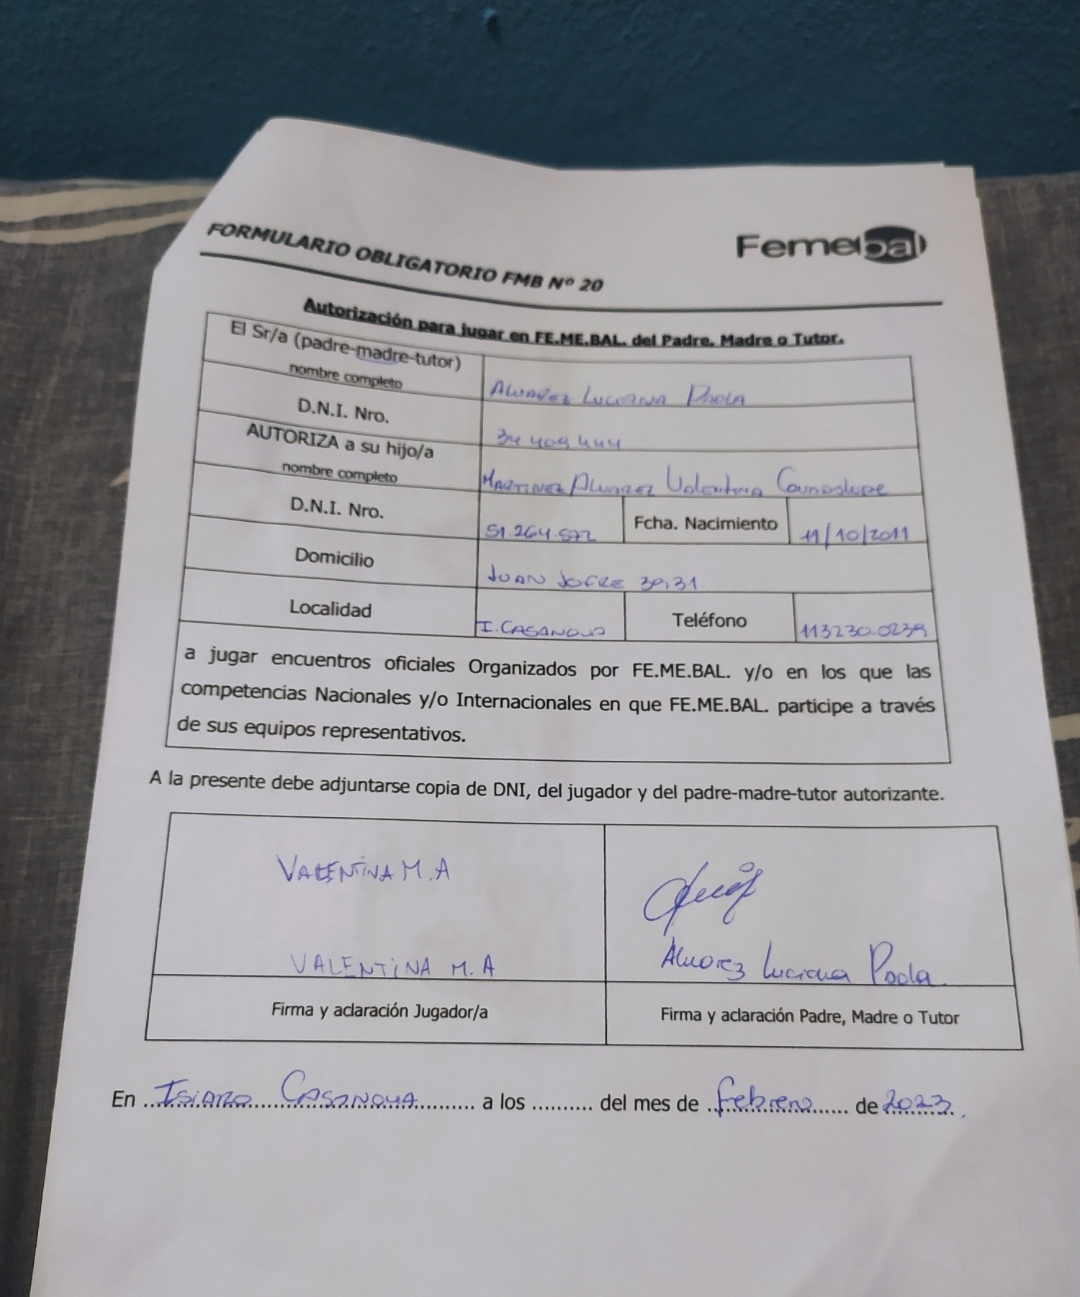 FORMULARIO OBLIGATORIO FMB Nº 20
Femebal
Autorización para jugar en FE.ME.BAL. del Padre, Madre o Tutor.
El Sr/a (padre-madre-tutor)
nombre completo
Alvarez Luciana Paola
D.N.I. Nro.
34 409 444
AUTORIZA a su hijo/a
nombre completo
Martinez Alvarez Valentina Guadalupe
D.N.I. Nro.
51.264.572
Fcha. Nacimiento
11/10/2011
Domicilio
JUAN JOFRE 3931
Localidad
I. CASANOVA
Teléfono
113230.0239
a jugar encuentros oficiales Organizados por FE.ME.BAL. y/o en los que las
competencias Nacionales y/o Internacionales en que FE.ME.BAL. participe a través
de sus equipos representativos.
A la presente debe adjuntarse copia de DNI, del jugador y del padre-madre-tutor autorizante.
VALENTINA M.A
VALENTINA M.A
Alvarez Luciana Paola
Firma y aclaración Jugador/a
Firma y aclaración Padre, Madre o Tutor
En Isidro Casanova a los .......... del mes de febrero de 2023.